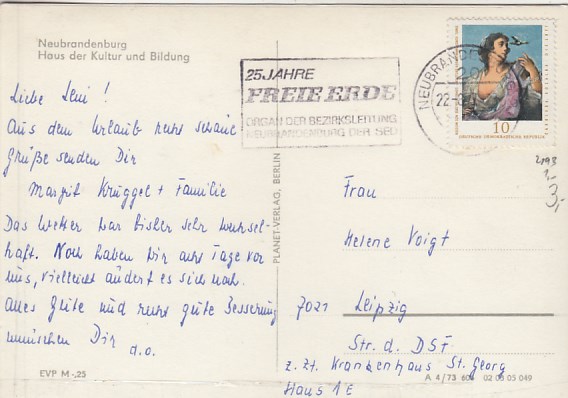 Neubrandenburg
Haus der Kultur und Bildung
25 JAHRE
FREIE ERDE
ORGAN DER BEZIRKSLEITUNG
NEUBRANDENBURG DER SED
NEUBRANDEN
20
22-8
10
DEUTSCHE DEMOKRATISCHE REPUBLIK
Liebe Leni!
Aus dem Urlaub recht schöne
Grüße senden Dir
Margrit Krüggel + Familie
Das Wetter war bisher sehr wechsel-
haft. Noch haben wir acht Tage vor
uns, vielleicht ändert es sich noch.
Alles Gute und recht gute Besserung
wünschen Dir
d.o.
EVP M -,25
PLANET-VERLAG, BERLIN
2193
1,-
3,-
Frau
Helene Voigt
7021 Leipzig
Str. d. DSF
z. Zt. Krankenhaus St. Georg
Haus 1E
A 4/73 600 02 03 05 049